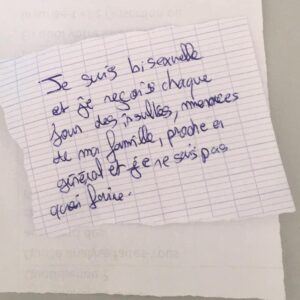 Je suis bisexuelle
et je reçois chaque
jour des insultes, menaces
de ma famille, proche en
général et je ne sais pas
quoi faire.